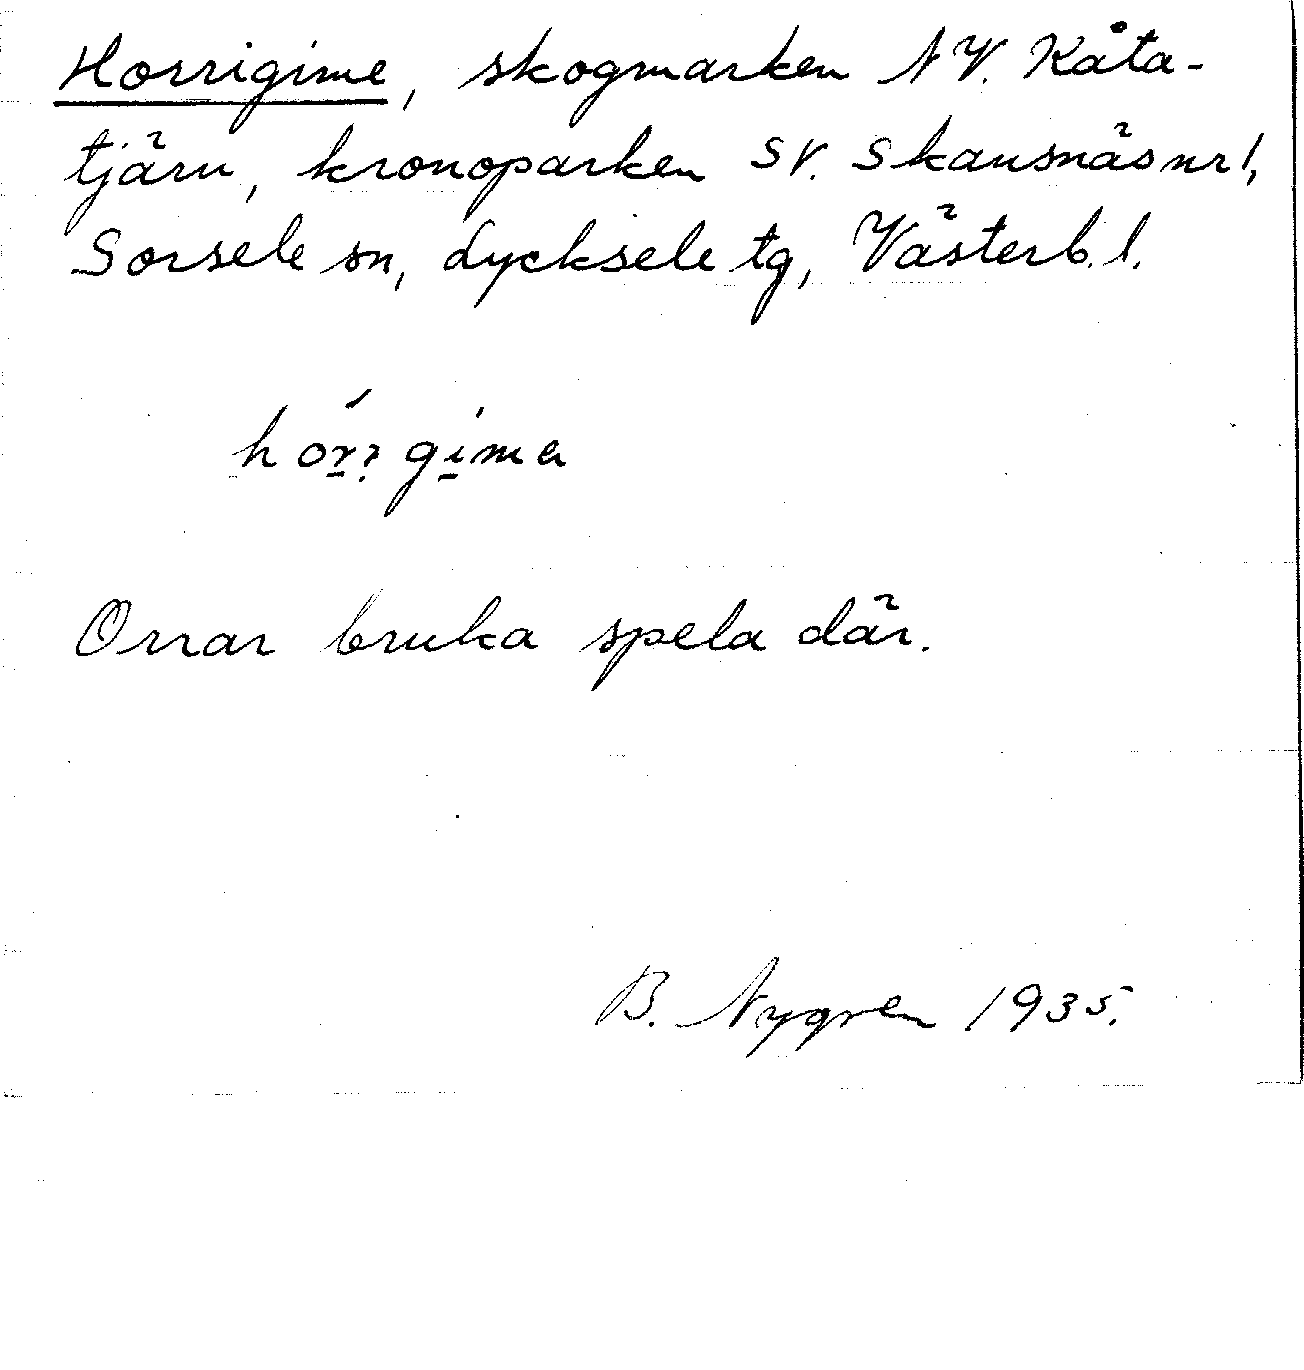 Horrigime, skogmarken NV. Kåta-
tjärn, kronoparken SV. Skansnäs nr 1,
Sorsele sn, Lycksele tg, Västerb. l.
Orrar bruka spela där.
B. Nygren 1935.